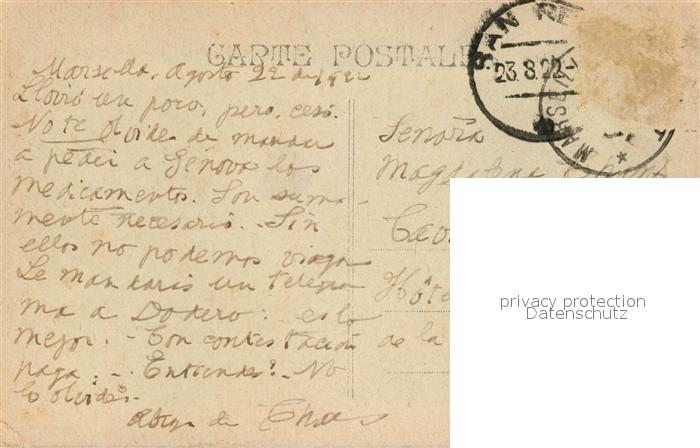 CARTE POSTALE
Marsella, Agosto 22 de 1922
Llovió un poco, pero cesó.
No te olvides de mandar
a pedir a Génova los
medicamentos. Son suma-
mente necesarios. - Sin
ellos no podemos viajar
Le mandarás un telegra
ma a Dodero: es lo
mejor. - Con contestación
paga. - Entiendes? - No
lo olvides -
SAN RE
23.8.22
Señora
Magdalena
Hôte
de la
privacy protection
Datenschutz